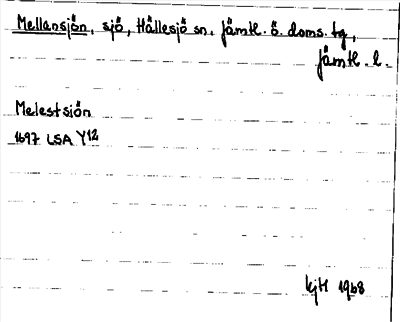 Mellansjön, sjö, Hällesjö sn, Jämtl. ö. doms. tg,
Jämtl. l.
Melestsiön
1697 LSA Y12
kjH 1968